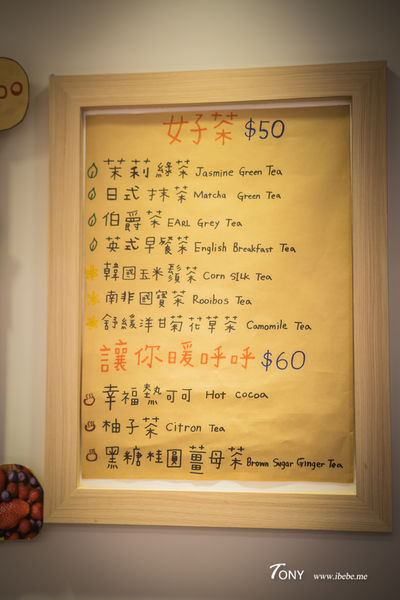 女子茶 $50
茉莉綠茶 Jasmine Green Tea
日式抹茶 Matcha Green Tea
伯爵茶 EARL Grey Tea
英式早餐茶 English Breakfast Tea
韓國玉米鬚茶 Corn SILK Tea
南非國寶茶 Rooibos Tea
舒緩洋甘菊花草茶 Camomile Tea
讓你暖呼呼 $60
幸福熱可可 Hot cocoa
柚子茶 Citron Tea
黑糖桂圓薑母茶 Brown Sugar Ginger Tea
TONY www.ibebe.me